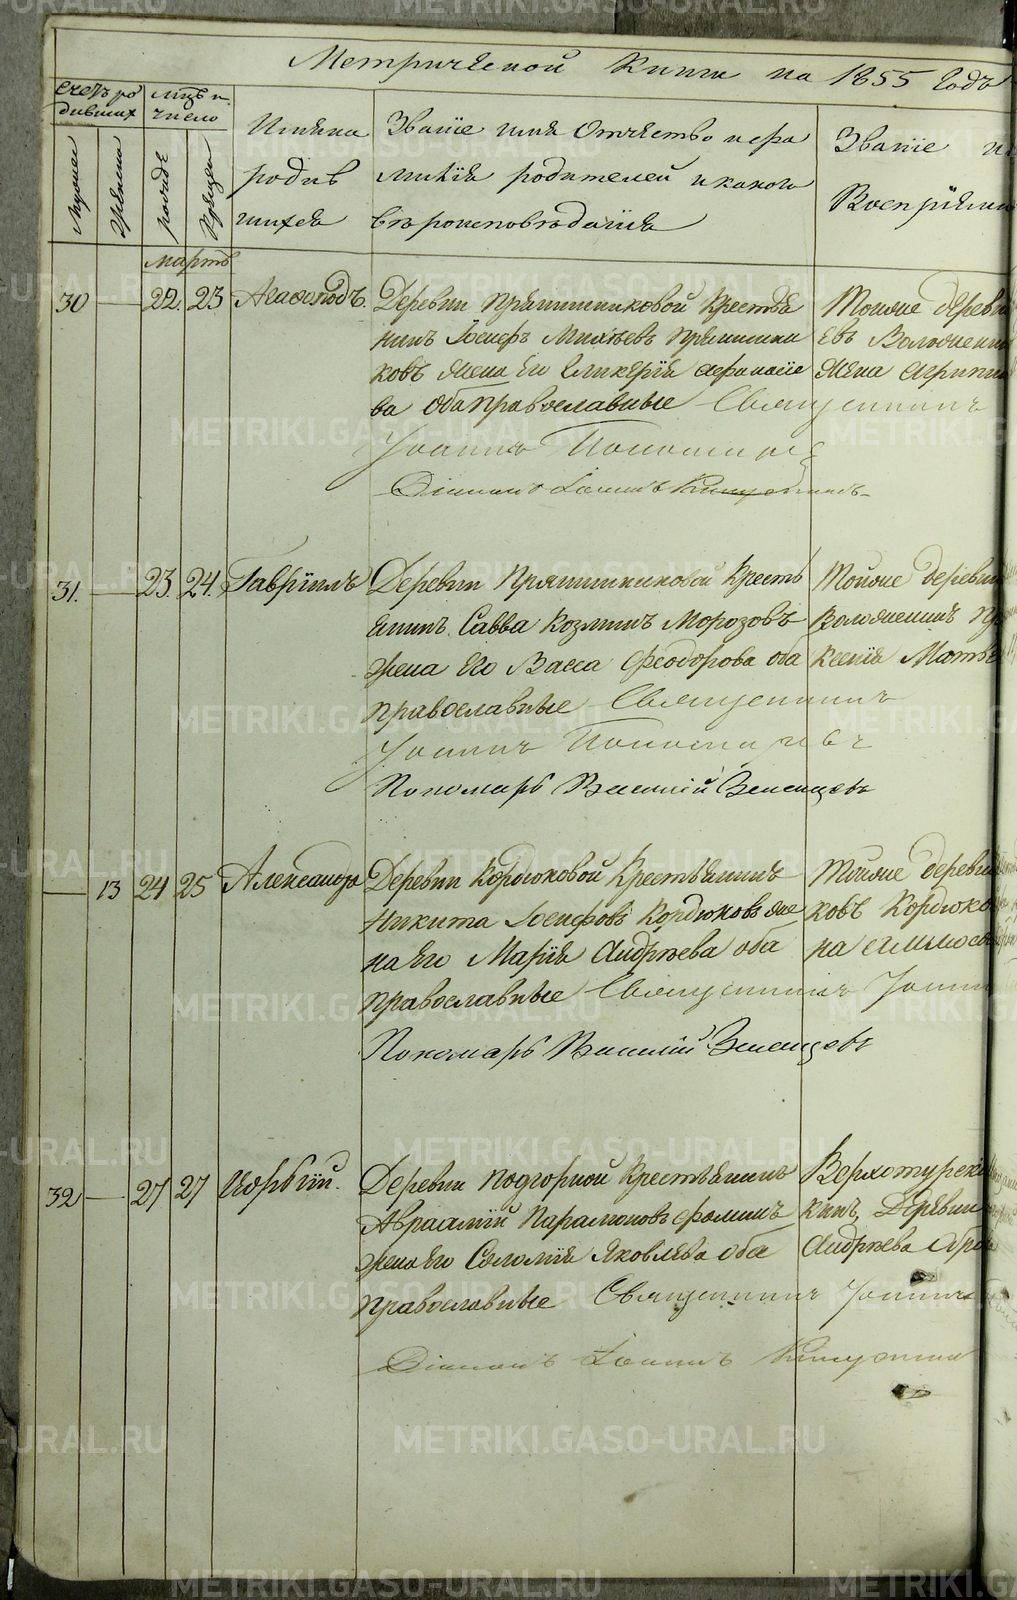 Метрической Книги на 1855 Годъ
Счетъ ро
дивших
Мужеск
Женски
Мцъ и
число
рожде
Крещен
Имяна
родив
шихся
Званіе имя Отчество и фа
милія родителей и какого
Вѣроисповѣданія
Званіе и
Воспріемн
мартъ
30 22 23 Агафоподъ
Деревни Прямишниковой Крестья
нинъ Іосифъ Михѣевъ Прямишни
ковъ Жена Его Гликерія Афанасіе
ва Оба Православные Священникъ
Іоаннъ Пономарев
Діаконъ Іоаннъ
Тойже Деревн
евъ Воложенин
Жена Агрипи
31. 23. 24. Гавріилъ
Деревни Прямишниковой Кресть
янинъ Савва Козминъ Морозовъ
жена Его Васса Феодорова оба
православные Священникъ
Іоаннъ Пономаревъ
Пономарь Василій Зеленцовъ
Тойже деревни
Воложенинъ Пр
ксенія Матѣ
13 24 25 Александра
Деревни Кордюковой Крестьянинъ
Никита Іосифовъ Кордюковъ же
на Его Марія Андрѣева оба
православные Священникъ Іоанн
Пономарь Василій Зеленцовъ
Тойже деревни
ковъ Кордюко
на
32 27 27
Деревни Подгорной Крестьянинъ
Авраамій Парамоновъ Фоминъ
жена Его Соломія Яковлева оба
православные Священникъ Іоаннъ
Діаконъ Іоаннъ
Верхотурск
кинъ, Деревни
Андрѣева
METRIKI.GASO-URAL.RU